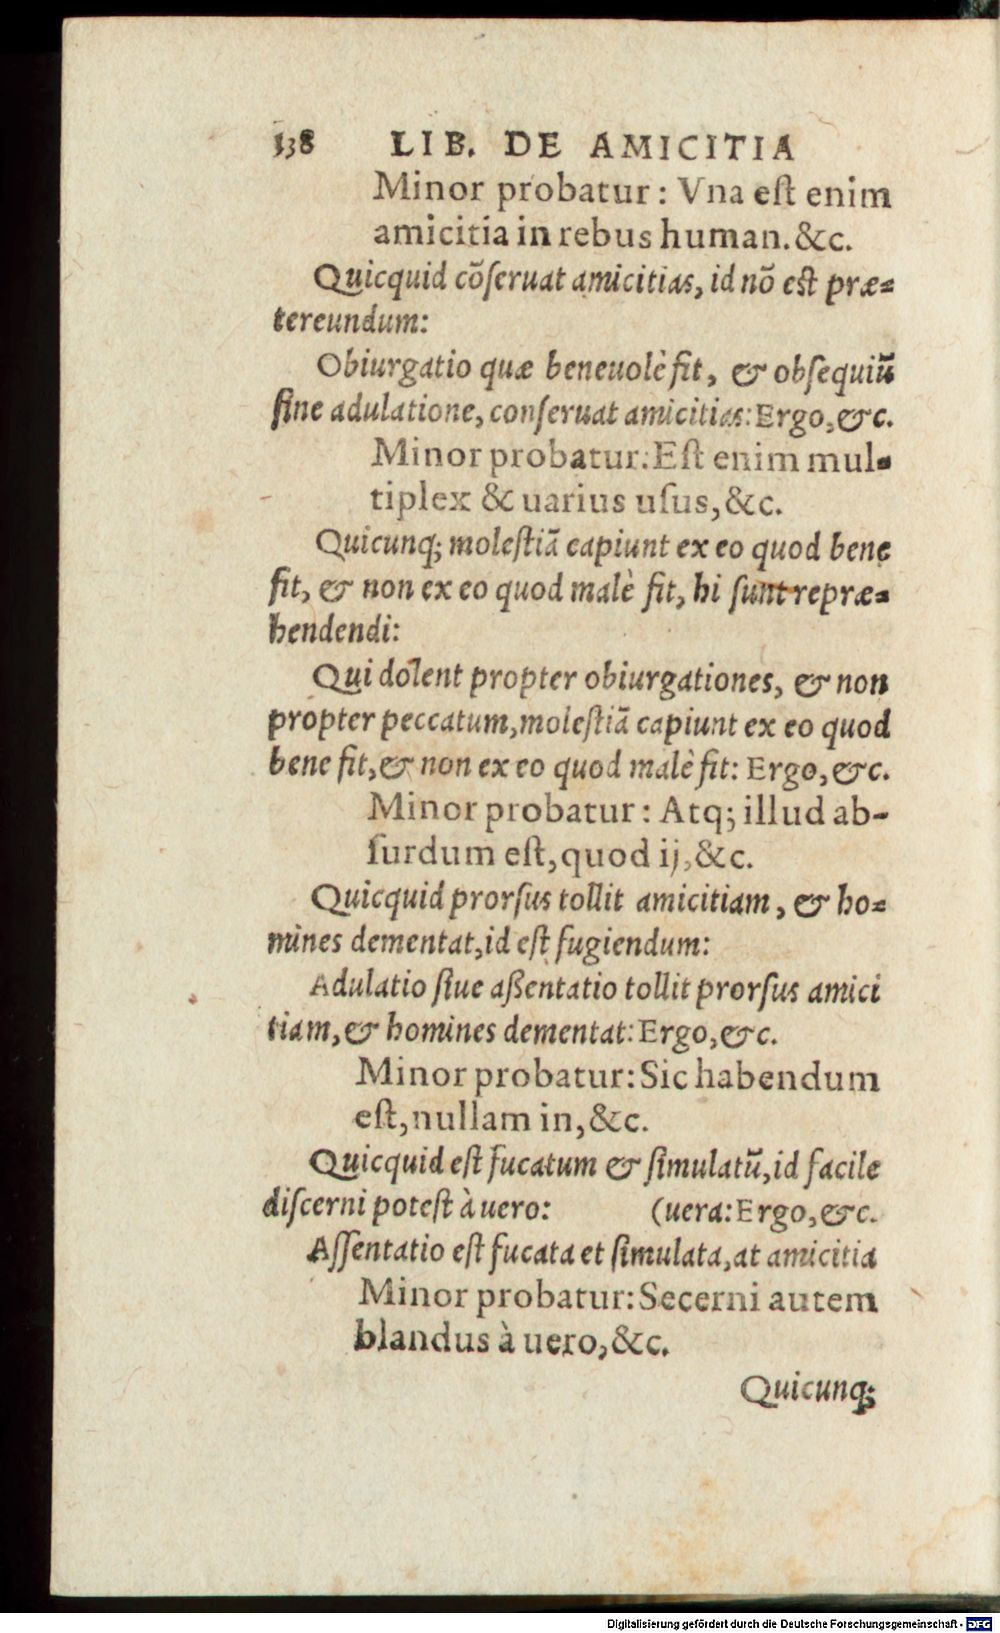 138 LIB. DE AMICITIA
Minor probatur: Vna eſt enim
amicitia in rebus human. &c.
Quicquid cōſeruat amicitias, id nō eſt præ-
tereundum:
Obiurgatio quæ beneuolè fit, & obſequiū
ſine adulatione, conſeruat amicitias: Ergo, &c.
Minor probatur: Eſt enim mul-
tiplex & uarius uſus, &c.
Quicunq; moleſtiā capiunt ex eo quod bene
fit, & non ex eo quod malè fit, hi ſunt repræ-
hendendi:
Qui dolent propter obiurgationes, & non
propter peccatum, moleſtiā capiunt ex eo quod
bene fit, & non ex eo quod malè fit: Ergo, &c.
Minor probatur: Atq; illud ab-
ſurdum eſt, quod ij, &c.
Quicquid prorſus tollit amicitiam, & ho-
mines dementat, id eſt fugiendum:
Adulatio ſiue aßentatio tollit prorſus amici
tiam, & homines dementat: Ergo, &c.
Minor probatur: Sic habendum
eſt, nullam in, &c.
Quicquid eſt fucatum & ſimulatū, id facile
diſcerni poteſt à uero: (uera: Ergo, &c.
Aſſentatio eſt fucata et ſimulata, at amicitia
Minor probatur: Secerni autem
blandus à uero, &c.
Quicunq;
Digitalisierung gefördert durch die Deutsche Forschungsgemeinschaft - DFG